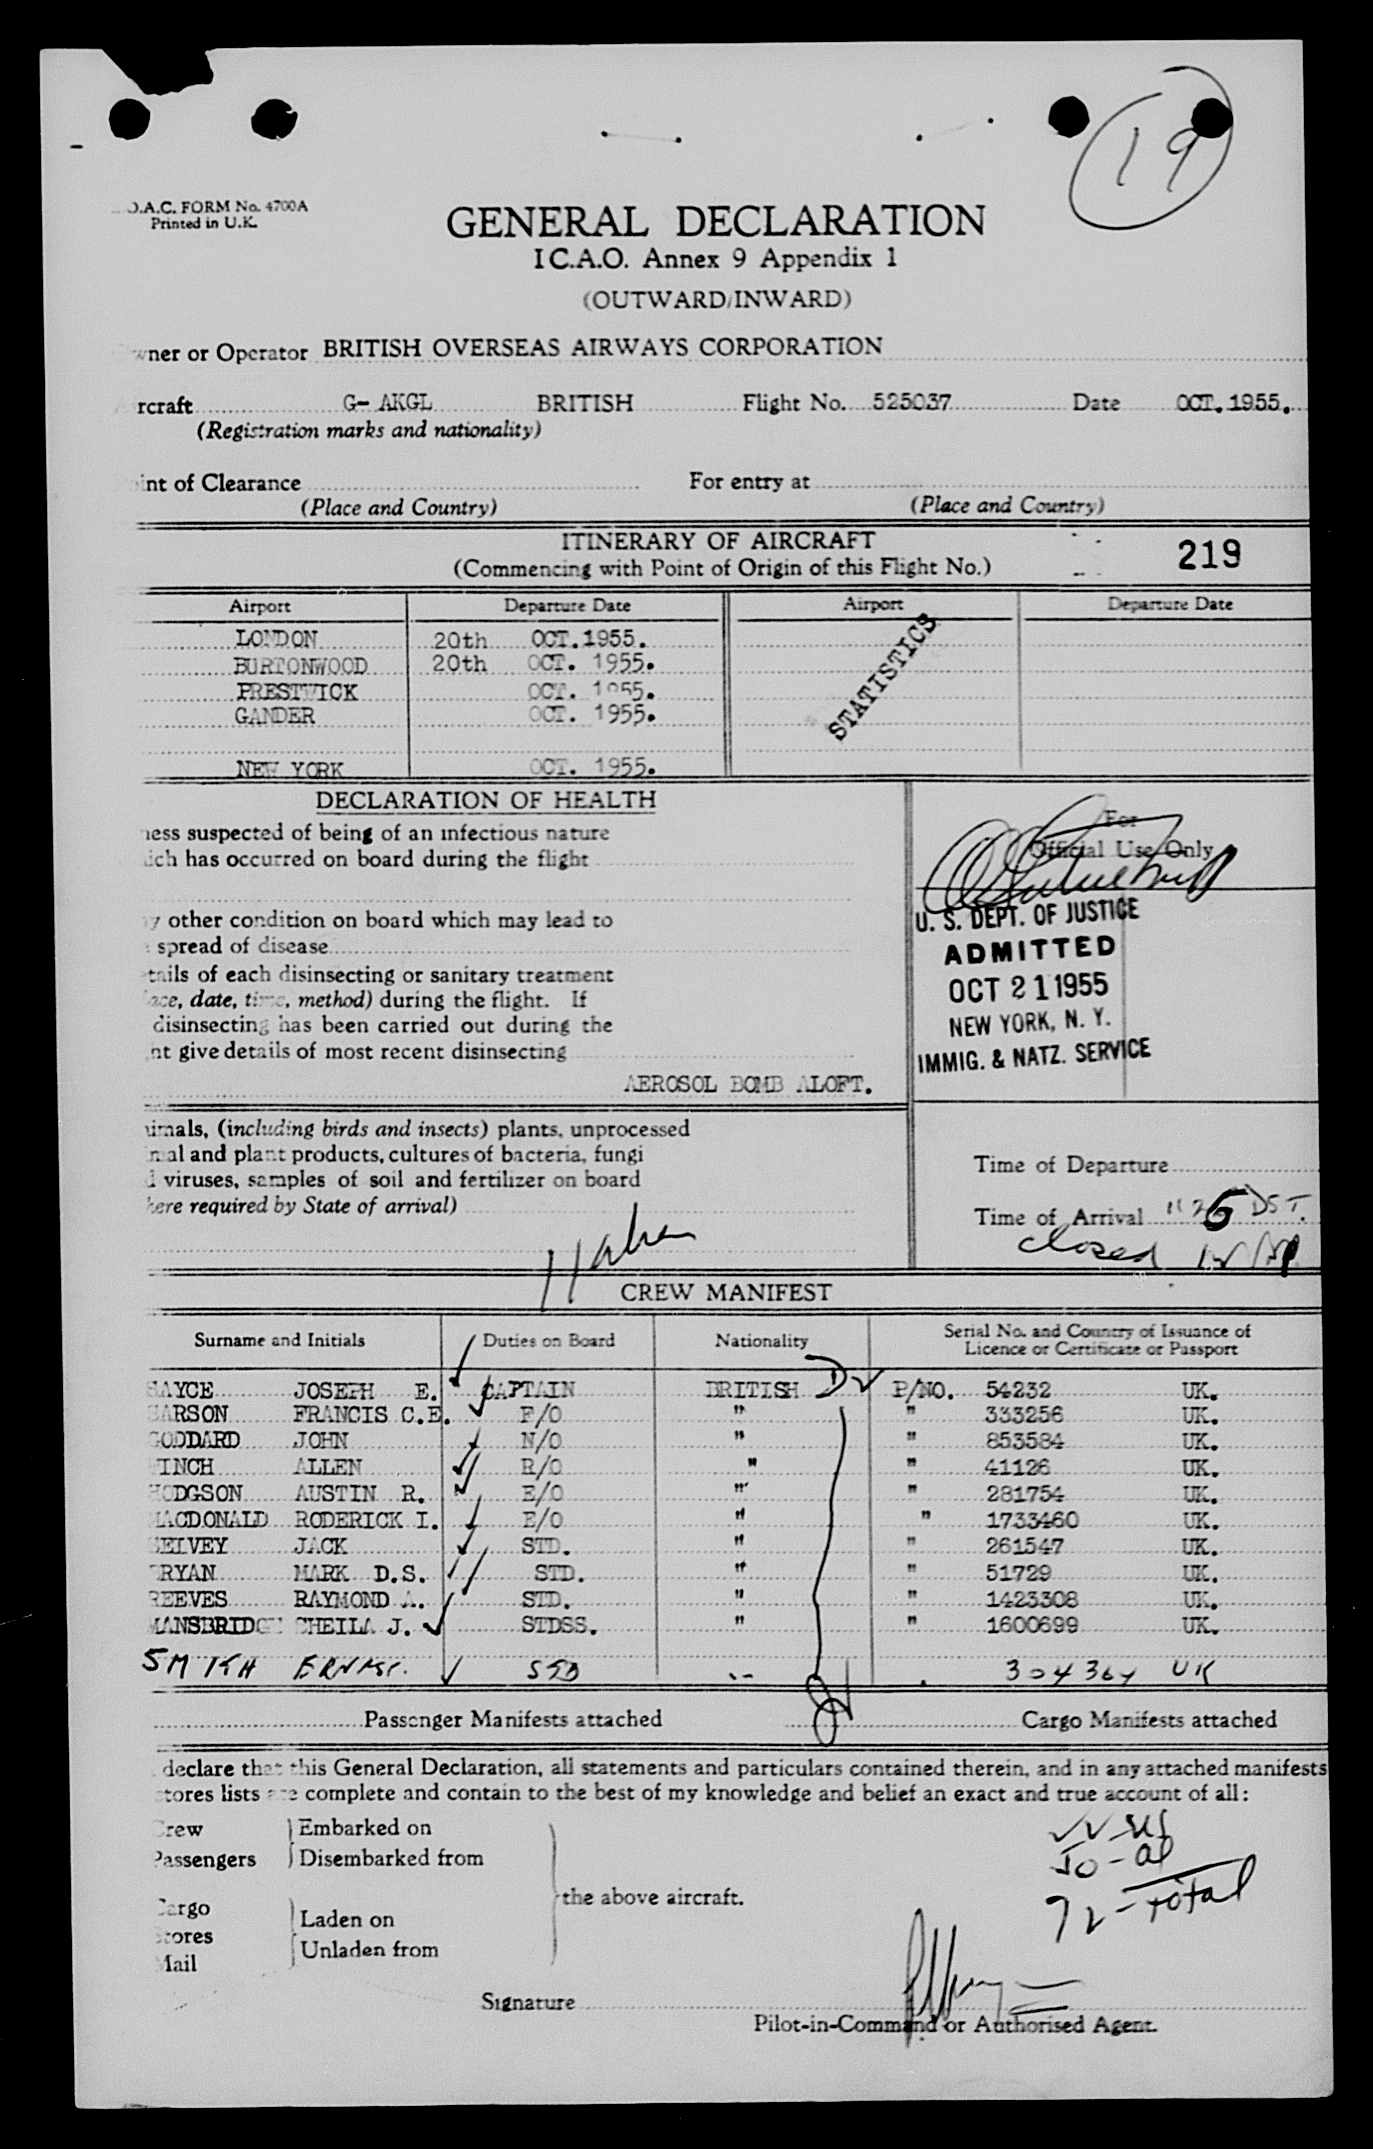 19
O.A.C. FORM No. 4700A
Printed in U.K.
GENERAL DECLARATION
I C.A.O. Annex 9 Appendix 1
(OUTWARD/INWARD)
wner or Operator BRITISH OVERSEAS AIRWAYS CORPORATION
rcraft G- AKGL BRITISH Flight No. 525037 Date OCT. 1955.
(Registration marks and nationality)
int of Clearance For entry at
(Place and Country) (Place and Country)
ITINERARY OF AIRCRAFT
(Commencing with Point of Origin of this Flight No.)
219
Airport Departure Date Airport Departure Date
LONDON 20th OCT. 1955.
BURTONWOOD 20th OCT. 1955.
PRESTWICK OCT. 1955.
GANDER OCT. 1955.
NEW YORK OCT. 1955.
STATISTICS
DECLARATION OF HEALTH
ness suspected of being of an infectious nature
ich has occurred on board during the flight
y other condition on board which may lead to
spread of disease
etails of each disinsecting or sanitary treatment
ace, date, time, method) during the flight. If
disinsecting has been carried out during the
ht give details of most recent disinsecting
AEROSOL BOMB ALOFT.
For
Official Use Only
U. S. DEPT. OF JUSTICE
ADMITTED
OCT 21 1955
NEW YORK, N. Y.
IMMIG. & NATZ. SERVICE
imals, (including birds and insects) plants, unprocessed
mal and plant products, cultures of bacteria, fungi
d viruses, samples of soil and fertilizer on board
here required by State of arrival)
Time of Departure
Time of Arrival DST.
closed
CREW MANIFEST
Surname and Initials Duties on Board Nationality Serial No. and Country of Issuance of
Licence or Certificate or Passport
SAYCE JOSEPH E. CAPTAIN BRITISH P/NO. 54232 UK.
SARSON FRANCIS C.E. F/O " " 333256 UK.
GODDARD JOHN N/O " " 853584 UK.
FINCH ALLEN R/O " " 41126 UK.
HODGSON AUSTIN R. E/O " " 281754 UK.
MACDONALD RODERICK I. E/O " " 1733460 UK.
SELVEY JACK STD. " " 261547 UK.
BRYAN MARK D.S. STD. " " 51729 UK.
REEVES RAYMOND A. STD. " " 1423308 UK.
MANSBRIDGE SHEILA J. STDSS. " " 1600699 UK.
SMITH ERNEST. STD 304364 UK
Passenger Manifests attached Cargo Manifests attached
declare that this General Declaration, all statements and particulars contained therein, and in any attached manifests
stores lists are complete and contain to the best of my knowledge and belief an exact and true account of all:
Crew Embarked on
Passengers Disembarked from
the above aircraft.
Cargo Laden on
Stores
Unladen from
Mail
72 - Total
Signature
Pilot-in-Command or Authorised Agent.